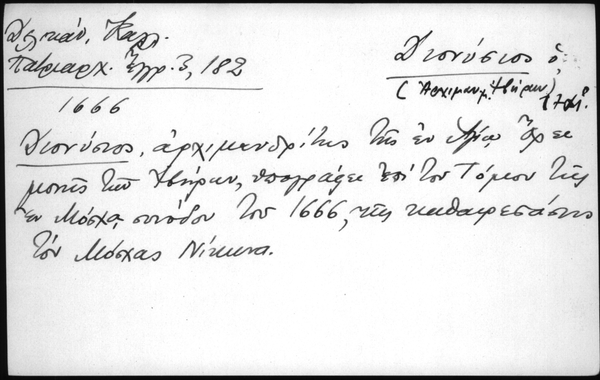 Δελικάν, Καλ.
Πατριαρχ. Ἔγγρ. 3, 182
Διονύσιος ὁ
(Ἀρχιμανδρ. Ἰβήρων)
1666
Διονύσιος, ἀρχιμανδρίτης τῆς ἐν Ἁγίῳ Ὄρει
μονῆς τῶν Ἰβήρων, ὑπογράφει ἐπὶ τοῦ Τόμου τῆς
ἐν Μόσχᾳ συνόδου τοῦ 1666, τῆς καθαιρεσάσης
τὸν Μόσχας Νίκωνα.